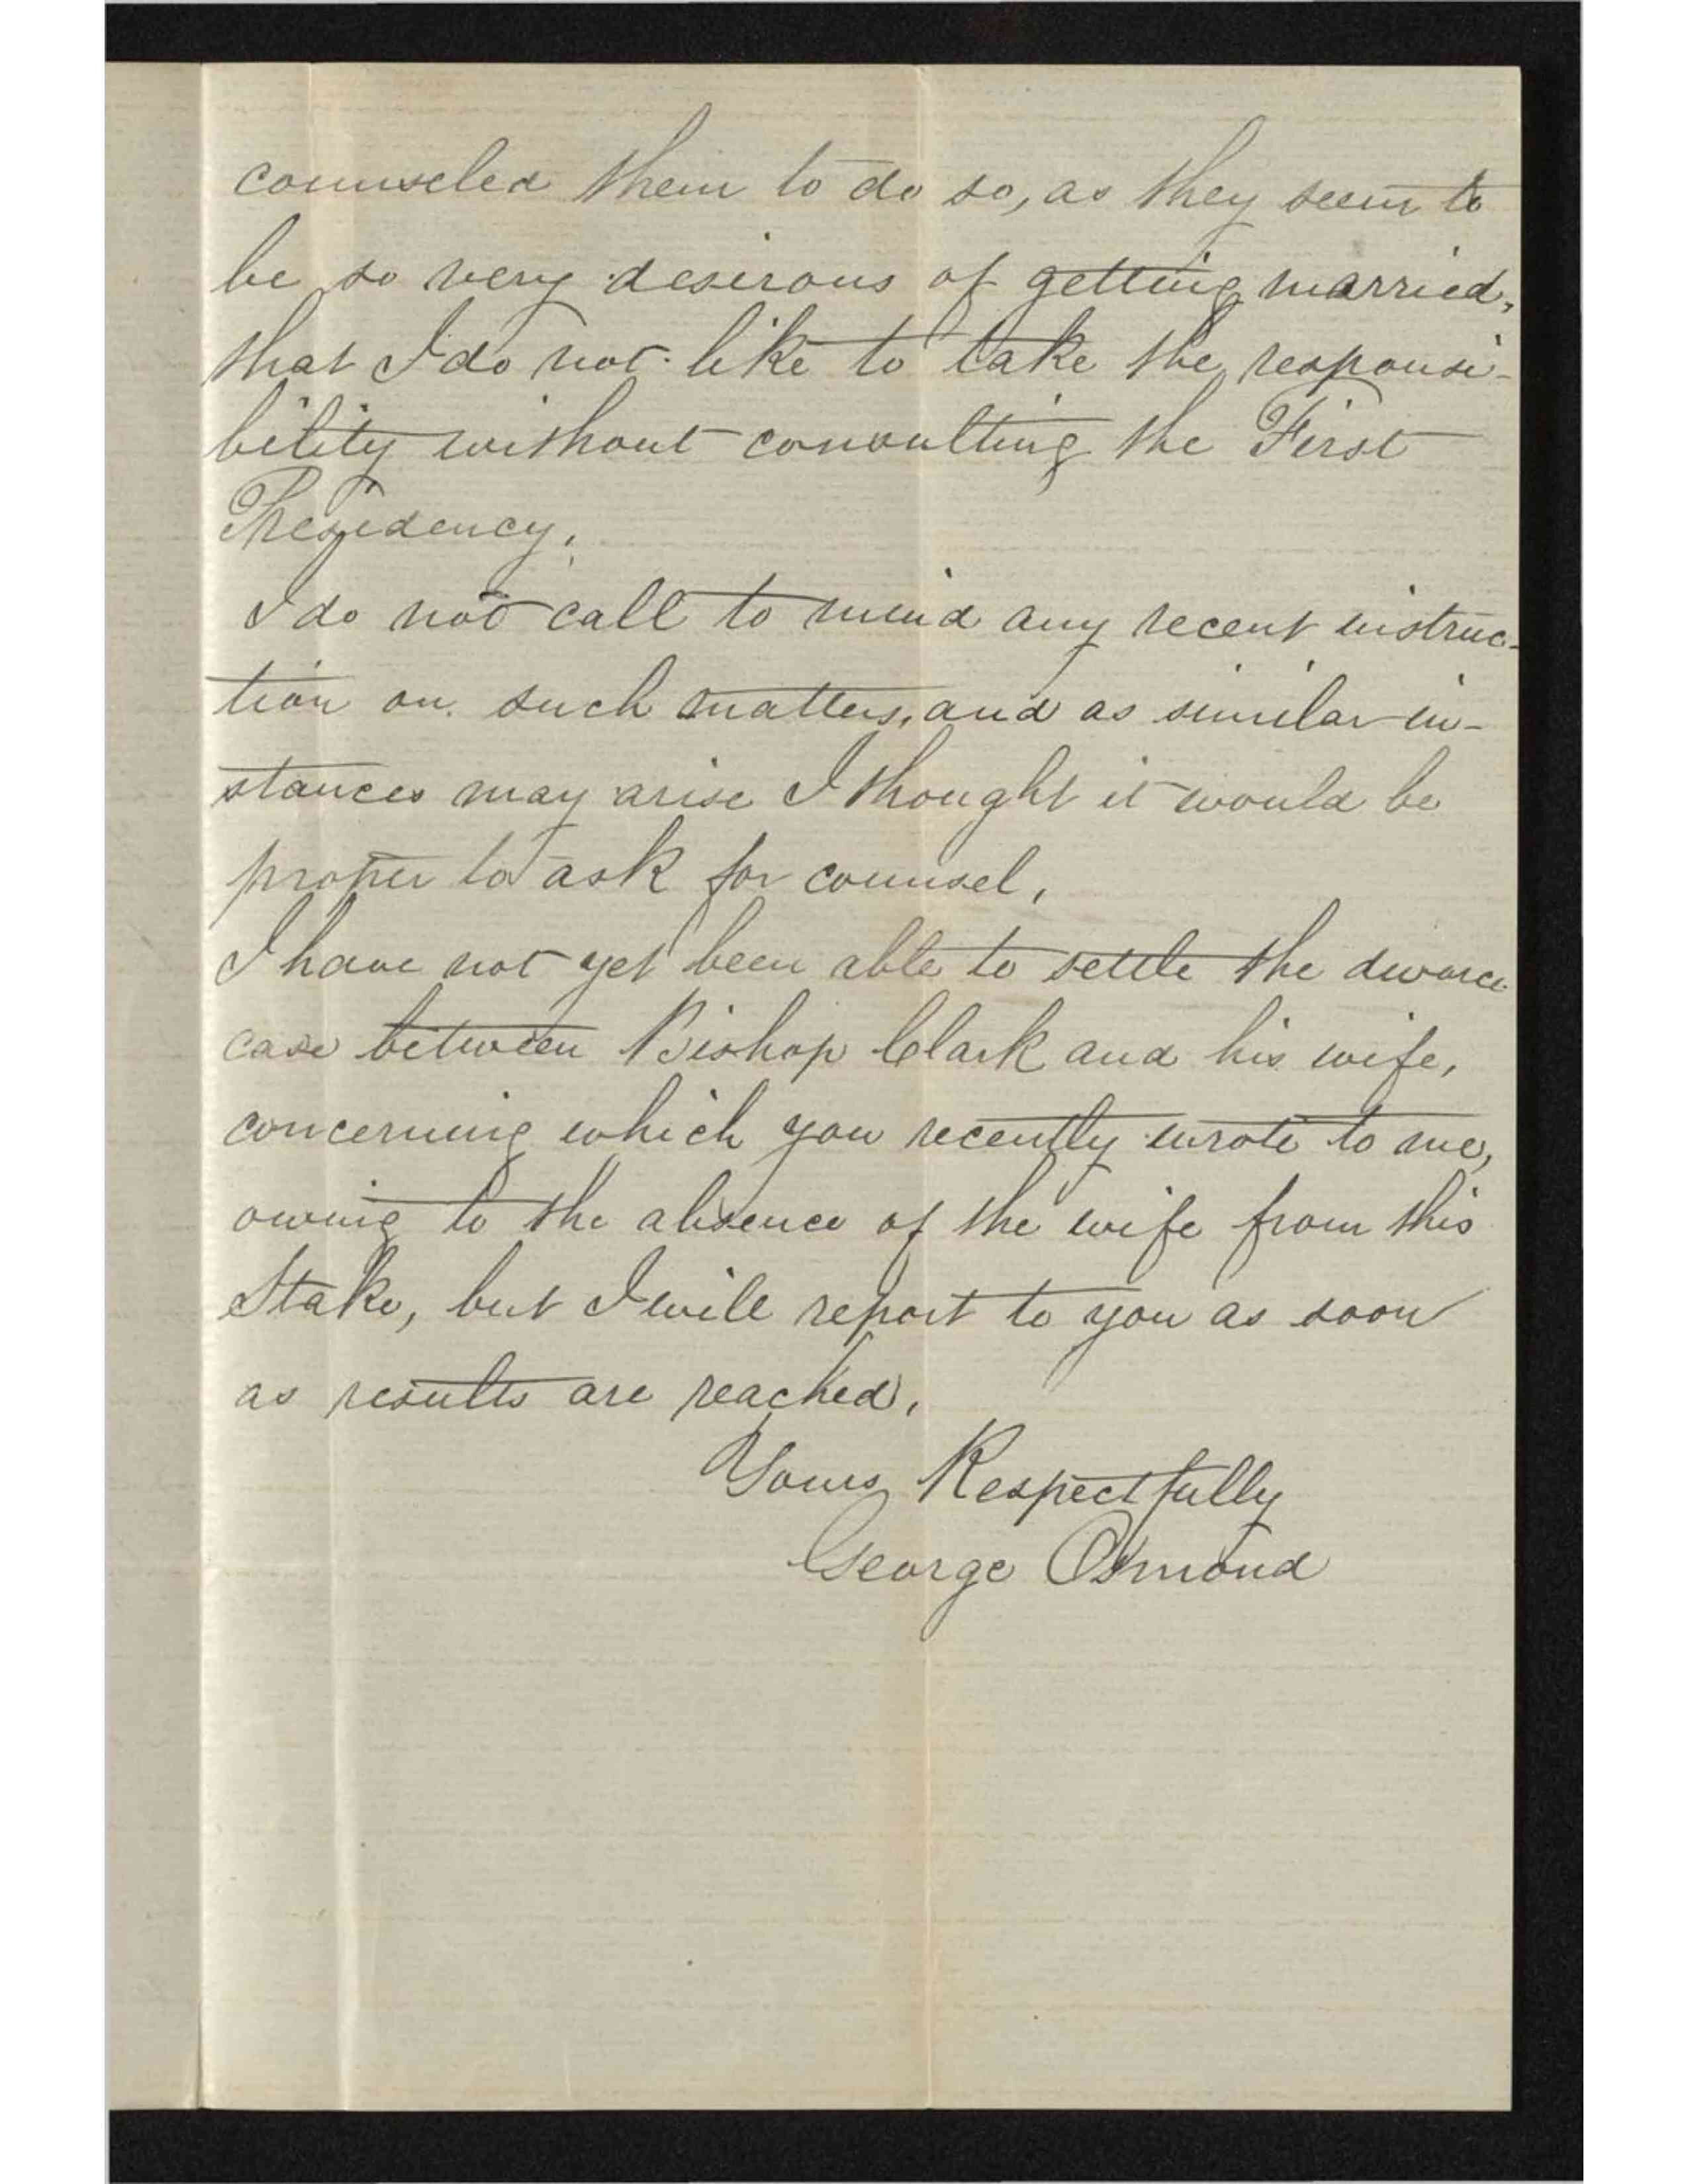 counseled them to do so, as they seem to
be so very desirous of getting married,
that I do not like to take the responsi-
bility without consulting the First
Presidency.
I do not call to mind any recent instruc-
tion on such matters, and as similar in-
stances may arise I thought it would be
proper to ask for counsel.
I have not yet been able to settle the divorce
case between Bishop Clark and his wife,
concerning which you recently wrote to me,
owing to the absence of the wife from this
Stake, but I will report to you as soon
as results are reached.
Yours Respectfully
George Osmond